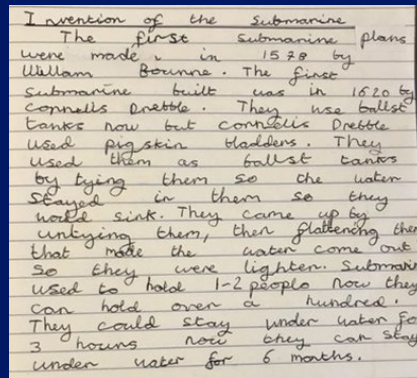 Invention of the Submarine
The first submarine plans
were made in 1578 by
William Bourne. The first
submarine built was in 1620 by
Cornelis Drebble. They use ballst
tanks now but cornelis Drebble
used pigskin bladders. They
used them as ballst tanks
by tying them so the water
stayed in them so they
would sink. They came up by
untying them, then flattening them
that made the water come out
so they were lighter. Submarin
used to hold 1-2 people now they
can hold over a hundred.
They could stay under water fo
3 hours now they can stay
under water for 6 months.